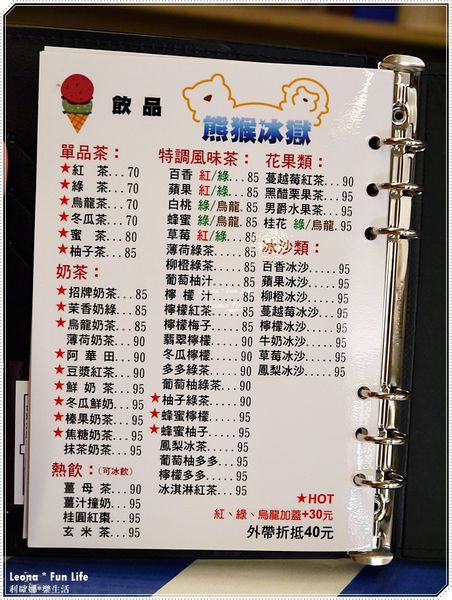 飲品
熊猴冰獄
單品茶：
★紅　茶...70
★綠　茶...70
★烏龍茶...70
★冬瓜茶...70
★蜜　茶...80
★柚子茶...85
奶茶：
★招牌奶茶...85
★茉香奶綠...85
★烏龍奶茶...85
薄荷奶茶...90
★阿華田...90
★豆漿紅茶...90
★鮮奶茶...95
★冬瓜鮮奶...95
★榛果奶茶...95
★焦糖奶茶...95
抹茶奶茶...95
熱飲：(可冰飲)
薑母茶...90
薑汁撞奶...95
桂圓紅棗...95
玄米茶...95
特調風味茶：
百香 紅/綠...85
蘋果 紅/綠...85
白桃 綠/烏龍.85
蜂蜜 綠/烏龍.85
草莓 紅/綠...85
薄荷綠茶...85
柳橙綠茶...85
葡萄柚汁...85
檸檬汁...85
檸檬紅茶...85
檸檬梅子...85
翡翠檸檬...90
冬瓜檸檬...90
多多綠茶...90
葡萄柚綠茶.90
★柚子綠茶...90
★蜂蜜檸檬...90
★蜂蜜柚子...90
鳳梨冰茶...95
葡萄柚多多.95
檸檬多多...95
冰淇淋紅茶.95
花果類：
蔓越莓紅茶...90
黑醋栗果茶...95
男爵水果茶...95
桂花 綠/烏龍.95
冰沙類：
百香冰沙....95
蘋果冰沙....95
柳橙冰沙....95
蔓越莓冰沙..95
檸檬冰沙....95
牛奶冰沙....95
草莓冰沙....95
鳳梨冰沙....95
★HOT
紅、綠、烏龍加蓋+30元
外帶折抵40元
Leona * Fun Life
利歐娜*樂生活